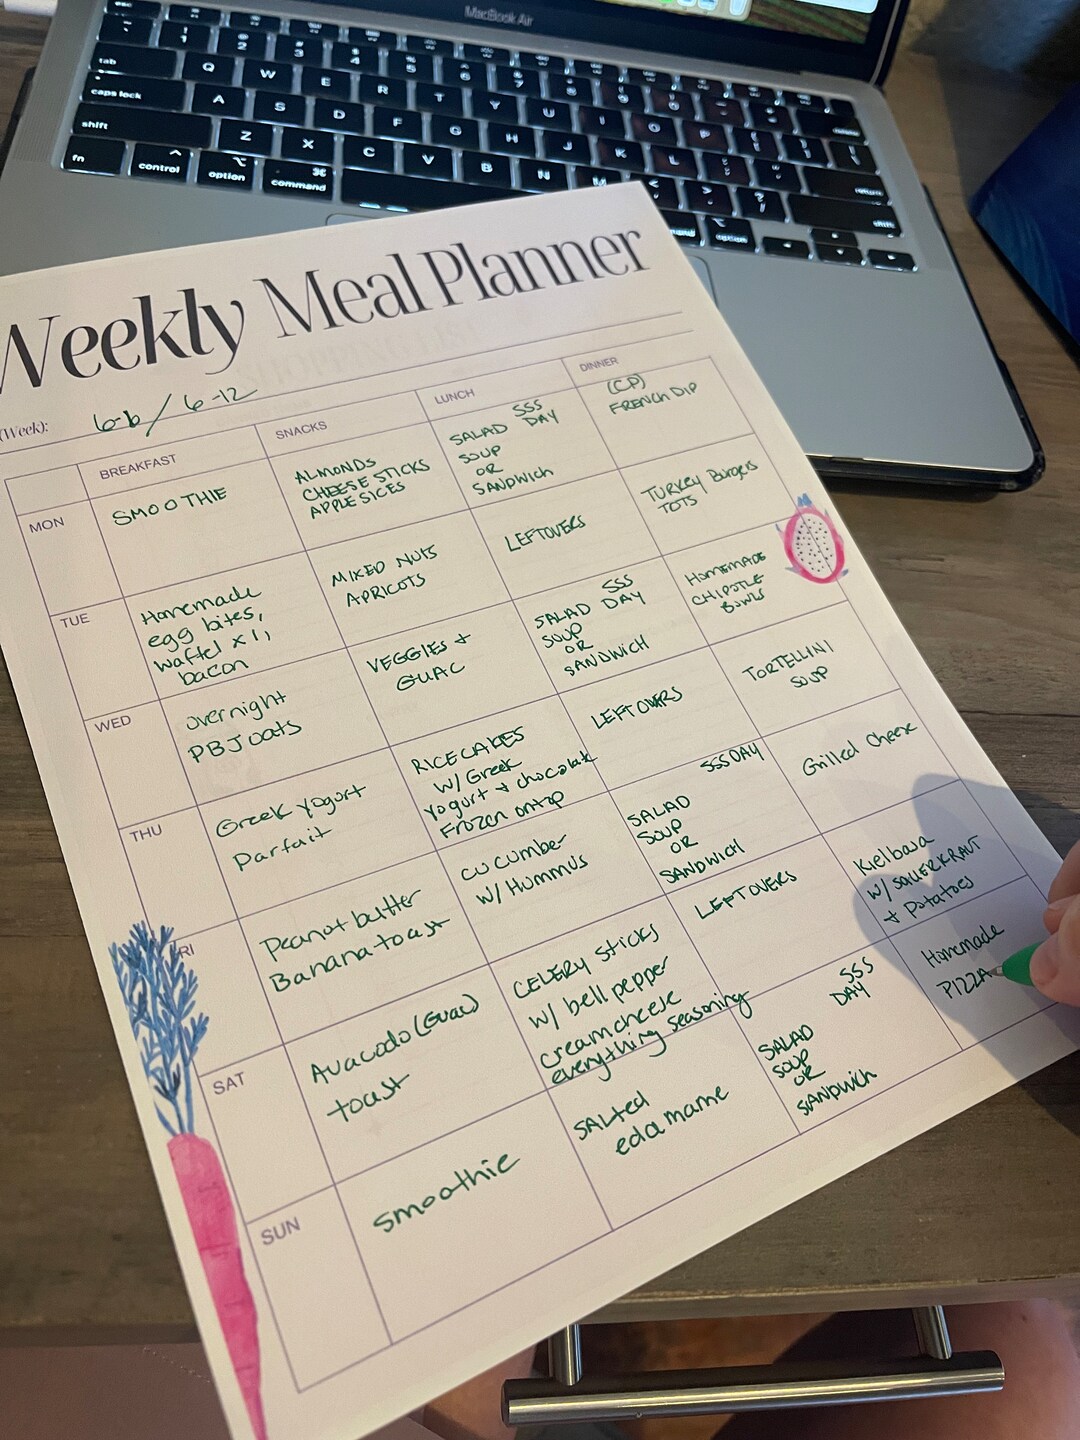 MacBook Air
esc
!
1
@
2
#
3
$
4
%
5
^
6
&
7
tab
Q
W
E
R
T
Y
U
I
O
P
caps lock
A
S
D
F
G
H
J
K
L
return
shift
Z
X
C
V
B
N
M
<
,
>
.
?
/
shift
fn
control
option
command
option
Weekly Meal Planner
(Week): 6-6 / 6-12
BREAKFAST
SNACKS
LUNCH
DINNER
MON
SMOOTHIE
ALMONDS
CHEESE STICKS
APPLE SICES
SSS
SALAD DAY
SOUP
OR
SANDWICH
(CP)
FRENCH DIP
TUE
Homemade
egg bites,
waffel x1,
bacon
MIXED NUTS
APRICOTS
LEFTOVERS
TURKEY Burgers
TOTS
WED
overnight
PBJ oats
VEGGIES +
GUAC
SSS
SALAD DAY
SOUP
OR
SANDWICH
HOMEMADE
CHIPOTLE
BOWLS
THU
Greek yogurt
parfait
RICECAKES
W/ Greek
yogurt + chocolate
Frozen ontop
LEFTOVERS
TORTELLINI
SOUP
RI
Peanot butter
Banana toast
CUCUMBER
W/ HUMMUS
SSS DAY
SALAD
SOUP
OR
SANDWICH
Grilled Cheese
SAT
Avacado (Guac)
toast
CELERY sticks
w/ bell pepper
creamcheese
everything seasoning
LEFTOVERS
Kielbasa
W/ SAUERKRAUT
+ Potatoes
SUN
smoothie
SALTED
edamame
SSS
DAY
SALAD
SOUP
OR
SANDWICH
Homemade
PIZZA